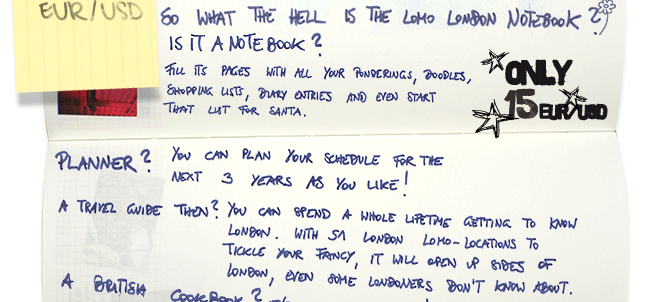 EUR/USD
SO WHAT THE HELL IS THE LOMO LONDON NOTEBOOK?
IS IT A NOTEBOOK?
FILL ITS PAGES WITH ALL YOUR PONDERINGS, DOODLES,
SHOPPING LISTS, DIARY ENTRIES AND EVEN START
THAT LIST FOR SANTA.
ONLY
15 EUR/USD
PLANNER? YOU CAN PLAN YOUR SCHEDULE FOR THE
NEXT 3 YEARS AS YOU LIKE!
A TRAVEL GUIDE THEN? YOU CAN SPEND A WHOLE LIFETIME GETTING TO KNOW
LONDON. WITH 51 LONDON LOMO-LOCATIONS TO
TICKLE YOUR FANCY, IT WILL OPEN UP SIDES OF
LONDON, EVEN SOME LONDONERS DON'T KNOW ABOUT.
A BRITISH COOKBOOK?